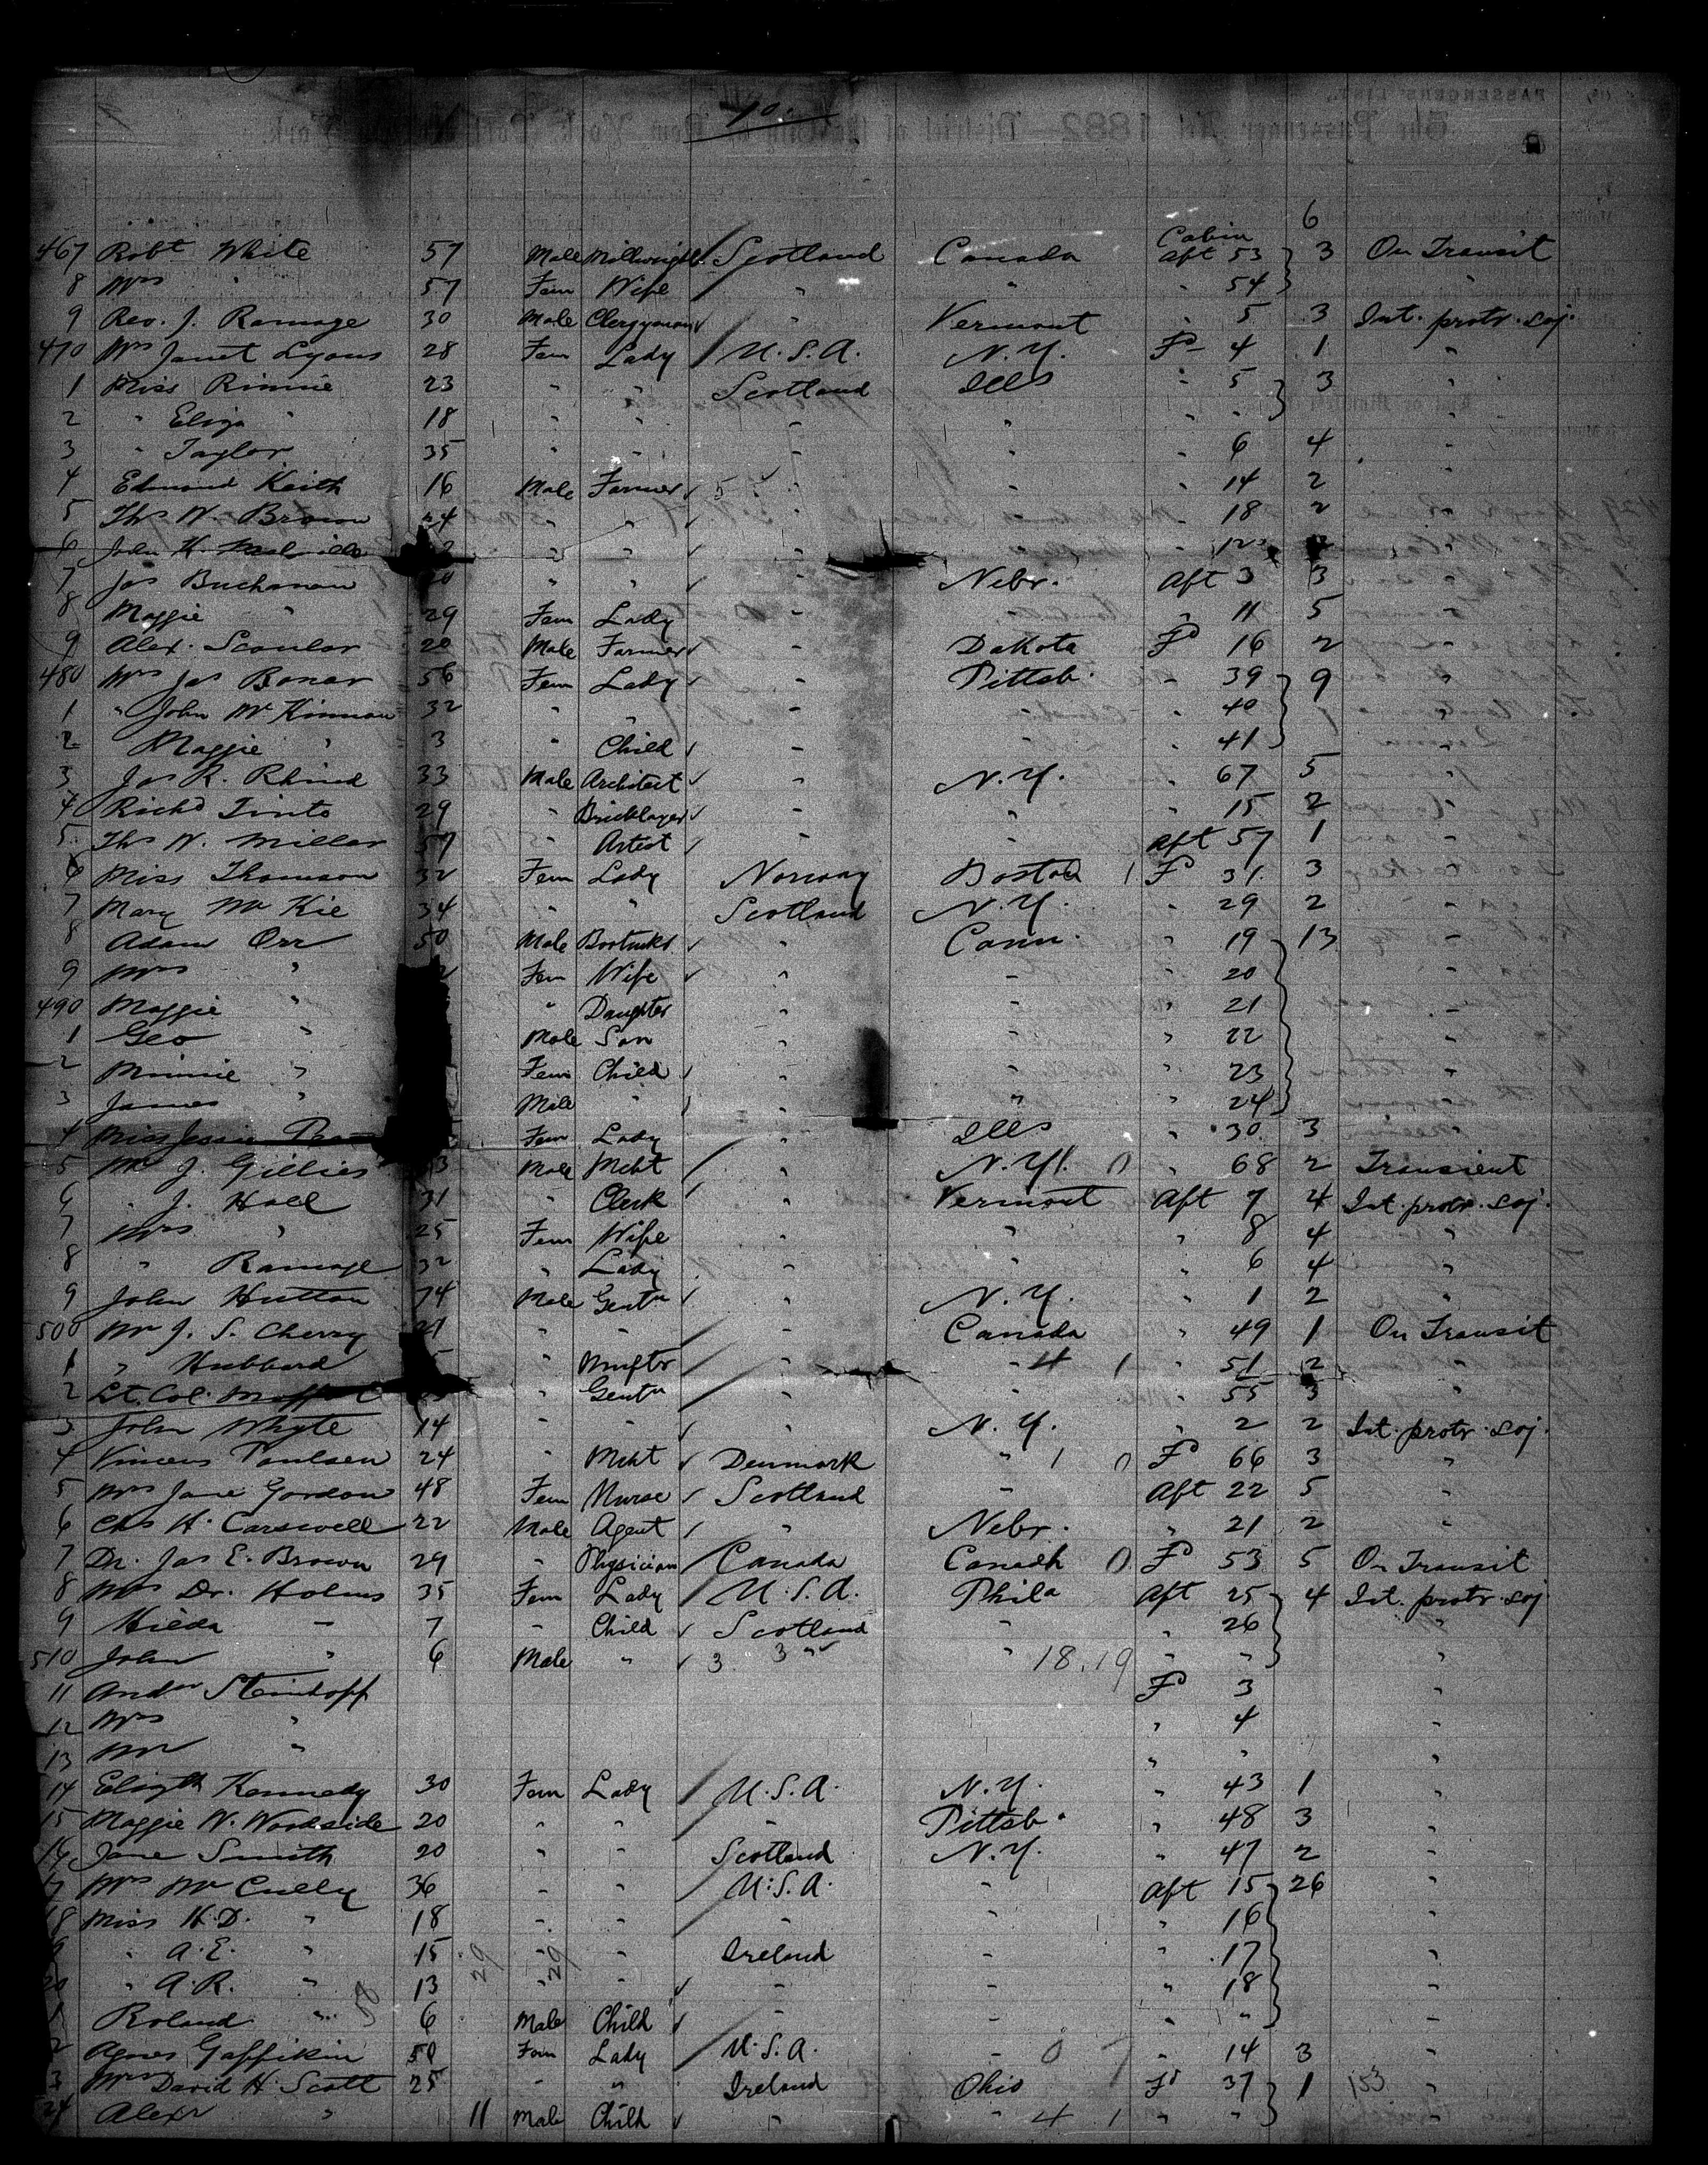 10.
6
Cabin
467 Robt White 57 Male Millwright Scotland Canada Aft 53 3 On Transit
8 Mrs " 57 Fem Wife " " " 54 "
9 Rev. J. Ramage 30 Male Clergyman " Vermont " 5 3 Int. protr. soj.
470 Mrs Janet Lyons 28 Fem Lady U.S.A. N.Y. Fd 4 1 "
1 Miss Rinnie 23 " " Scotland Ills " 5 3 "
2 " Eliza " 18 " " " " " " "
3 " Taylor 35 " " " " " 6 4 "
4 Edmond Keith 16 Male Farmer " " " 14 2 "
5 Ths W. Brown 24 " " " " " 18 2 "
6 John H. " " " " " 12
7 Jas Buchanan " " " Nebr. Aft 3 3 "
8 Maggie " 29 Fem Lady " " " 11 5 "
9 Alex. Scoular 20 Male Farmer " Dakota Fd 16 2 "
480 Mrs Jas Bonar 56 Fem Lady " Pittsb. " 39 9 "
1 " John McKinnon 32 " " " " " 40 "
2 Maggie " 3 " Child " " " 41 "
3 Jas R. Rhind 33 Male Architect " N.Y. " 67 5 "
4 Richd Tinto 29 " Bricklayer " " " 15 2 "
5 Ths W. Miller 57 " Artist " " Aft 57 1 "
6 Miss Thomson 32 Fem Lady Norway Boston 1 Fd 31 3 "
7 Mary McKie 34 " " Scotland N.Y. " 29 2 "
8 Adam Orr 50 Male Bootmkr " Conn. " 19 13 "
9 Mrs " Fem Wife " " " 20 "
490 Maggie " " Daughter " " " 21 "
1 Geo " Male Son " " " 22 "
2 Minnie " Fem Child " " " 23 "
3 James " Male " " " " 24 "
4 Miss Jessie Fem Lady " Ills " 30 3 "
5 Mr J. Gillies Male Mcht " N.Y. 0 " 68 2 Transient
6 " J. Hall 31 " Clerk " Vermont Aft 7 4 Int. protr. soj.
7 Mrs " 25 Fem Wife " " " 8 4 "
8 " Ramage 32 " Lady " " " 6 4 "
9 John Hutton 74 Male Gentn " N.Y. " 1 2 "
500 Mr J. S. Cherry 21 " " " Canada " 49 1 On Transit
1 " Hubbard " Mnftr " " 4 1 " 51 2 "
2 Lt. Col. Moffat " Gentn " " " 55 3 "
3 John Whyte 14 " " " N.Y. " 2 2 Int. protr. soj.
4 Vincens Poulsen 24 " Mcht Denmark " 1 0 Fd 66 3 "
5 Mrs Jane Gordon 48 Fem Nurse Scotland " Aft 22 5 "
6 Chs H. Carswell 22 Male Agent " Nebr. " 21 2 "
7 Dr. Jas E. Brown 29 " Physician Canada Canada 0 Fd 53 5 On Transit
8 Mrs Dr. Holms 35 Fem Lady U.S.A. Phila Aft 25 4 Int. protr. soj.
9 Hilda " 7 " Child Scotland " " 26 "
510 John " 6 Male " 3 3 " " 18.19 " " "
11 Andw Steinkopff Fd 3 "
12 Mrs " " 4 "
13 Mr " " " "
14 Elizth Kennedy 30 Fem Lady U.S.A. N.Y. " 43 1 "
15 Maggie W. Woodside 20 " " " Pittsb. " 48 3 "
16 Jane Smith 20 " " Scotland N.Y. " 47 2 "
7 Mrs McCully 36 " " U.S.A. " Aft 15 26 "
18 Miss H.D. " 18 " " " " 16 "
9 " A.E. " 15 29 " 29 " Ireland " " 17 "
20 " A.R. " 13 " " " " " 18 "
1 Roland " 58 6 Male Child " " " " "
2 Agnes Gaffikin 50 Fem Lady U.S.A. " 0 7 " 14 3 "
3 Mrs David H. Scott 25 " " Ireland Ohio Fd 37 1 153 "
24 Alexr " 11 Male Child " " 4 1 " " "